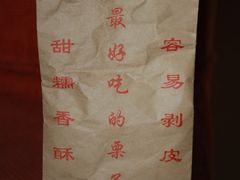 容易剥皮
最好吃的栗
甜糯香酥